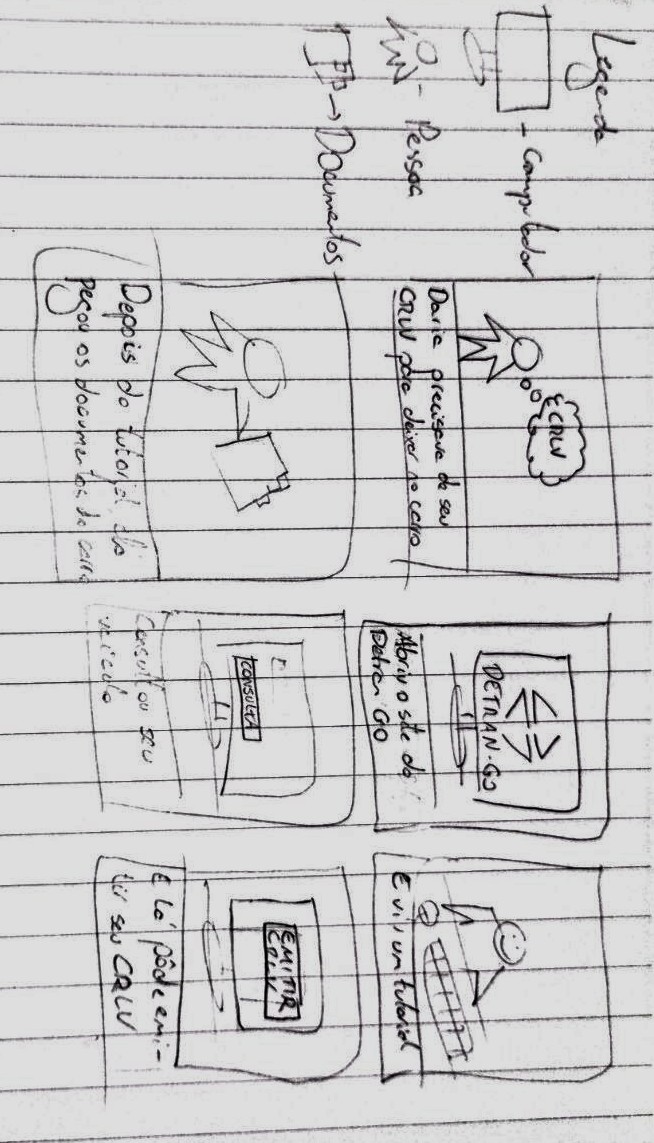 Legenda
- Computador
- Pessoa
→ Documentos
CRLV
Daria precisava de seu
CRLV para deixar no carro
DETRAN-GO
Abriu o site do
Detran GO
E viu um tutorial
Depois do tutorial, ela
pegou os documentos do carro
CONSULTA
Consultou seu
veículo
EMITIR
CRLV
E lá pôde emi-
tir seu CRLV